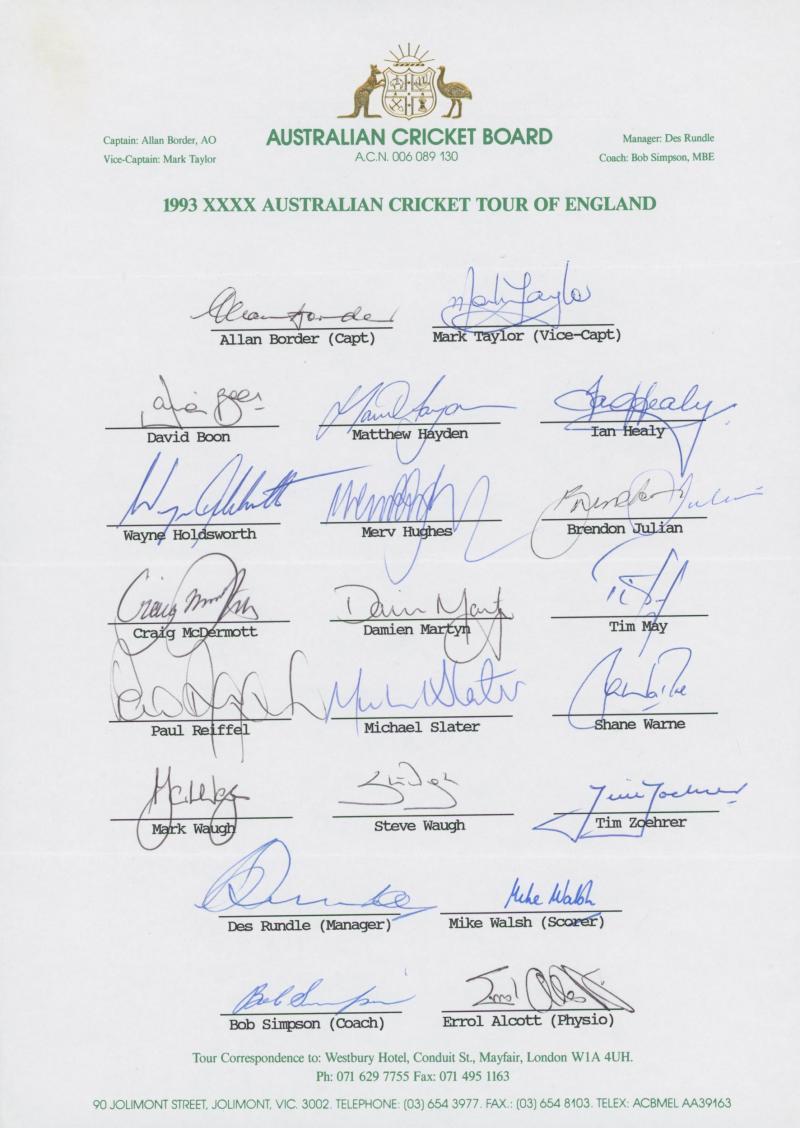 AUSTRALIAN CRICKET BOARD
A.C.N. 006 089 130
Captain: Allan Border, AO
Vice-Captain: Mark Taylor
Manager: Des Rundle
Coach: Bob Simpson, MBE
1993 XXXX AUSTRALIAN CRICKET TOUR OF ENGLAND
Allan Border Mark Taylor
Allan Border (Capt) Mark Taylor (Vice-Capt)
David Boon Ian Healy
David Boon Matthew Hayden Ian Healy
Wayne Holdsworth Merv Hughes Brendon Julian
Wayne Holdsworth Merv Hughes Brendon Julian
Craig McDermott Damien Martyn
Craig McDermott Damien Martyn Tim May
Michael Slater
Paul Reiffel Michael Slater Shane Warne
Tim Zoehrer
Mark Waugh Steve Waugh Tim Zoehrer
D Rundle Mike Walsh
Des Rundle (Manager) Mike Walsh (Scorer)
Bob Simpson Errol Alcott
Bob Simpson (Coach) Errol Alcott (Physio)
Tour Correspondence to: Westbury Hotel, Conduit St., Mayfair, London W1A 4UH.
Ph: 071 629 7755 Fax: 071 495 1163
90 JOLIMONT STREET, JOLIMONT, VIC. 3002. TELEPHONE: (03) 654 3977. FAX.: (03) 654 8103. TELEX: ACBMEL AA39163